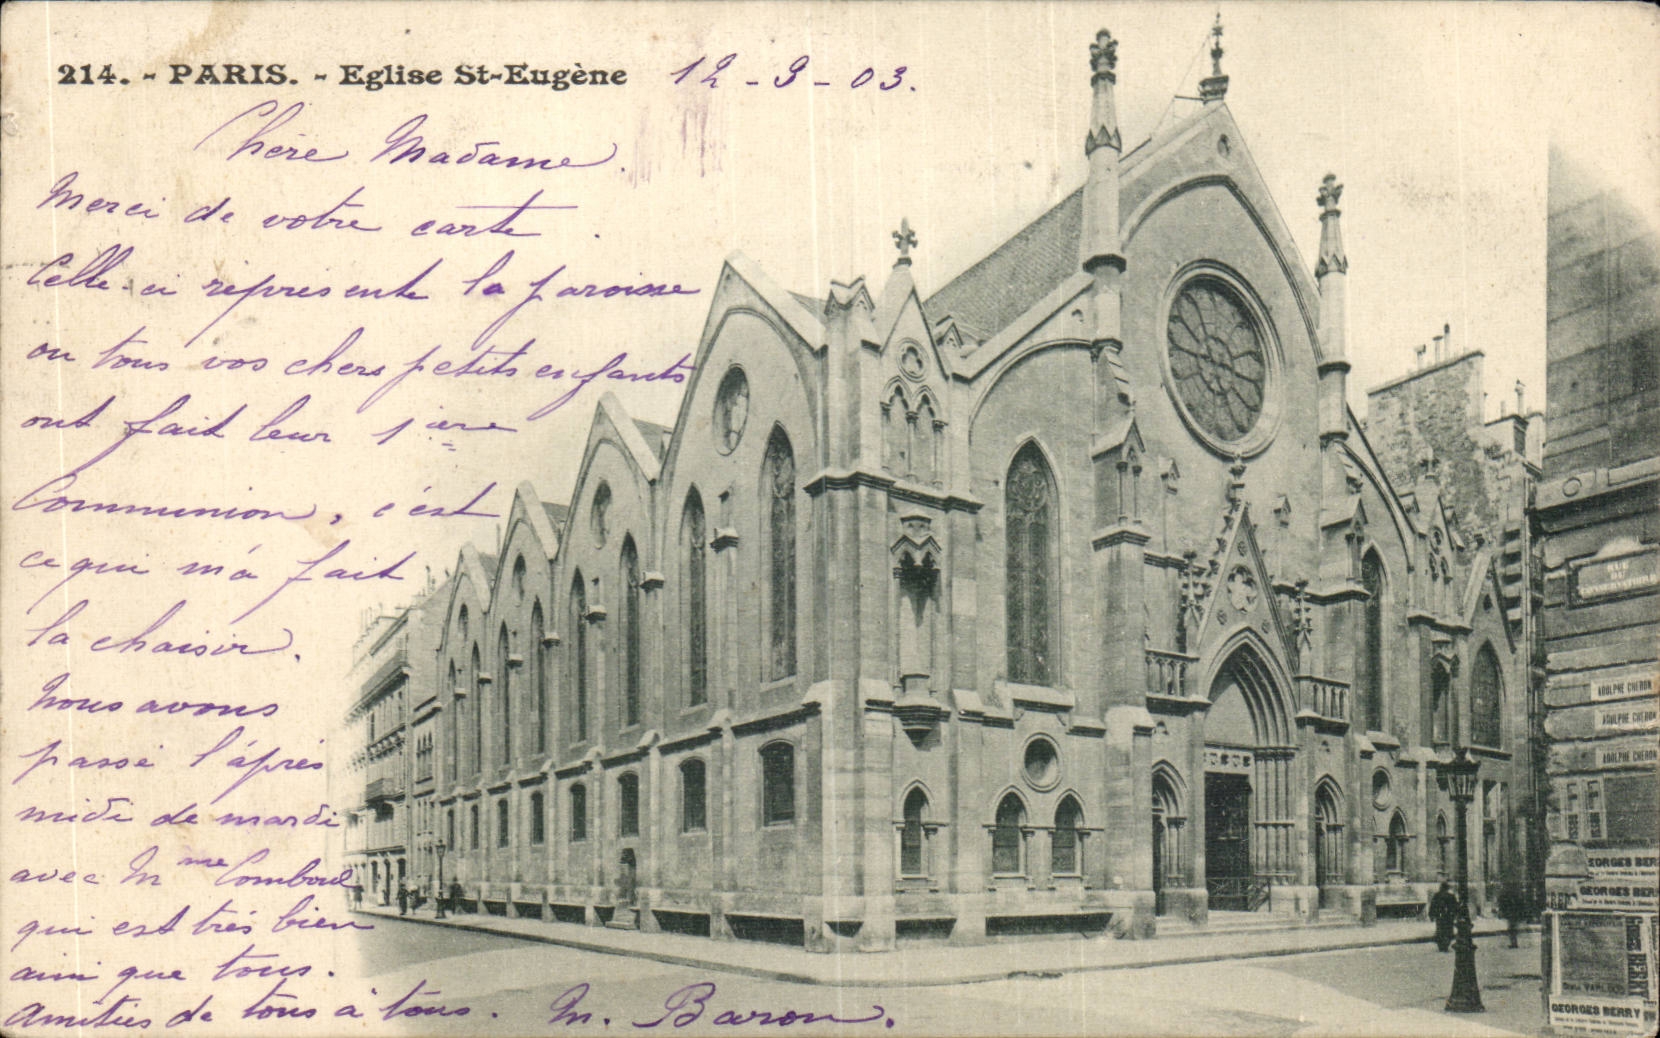 214. - PARIS. - Eglise St-Eugène 12 - 9 - 03.
Chère Madame.
Merci de votre carte.
Celle-ci représente la paroisse
ou tous vos chers petits enfants
ont fait leur 1ière
Communion, c'est
ce qui m'a fait
la choisir.
Nous avons
passé l'après
midi de mardi
avec Mme Comboul
qui est très bien
ainsi que tous.
Amitiés de tous à tous. M. Baron.
RUE
DU
CONSERVATOIRE
ADOLPHE CHERON
ADOLPHE CHERON
ADOLPHE CHERON
GEORGES BER
GEORGES BER
GEORGES BERRY
GEORGES BERRY